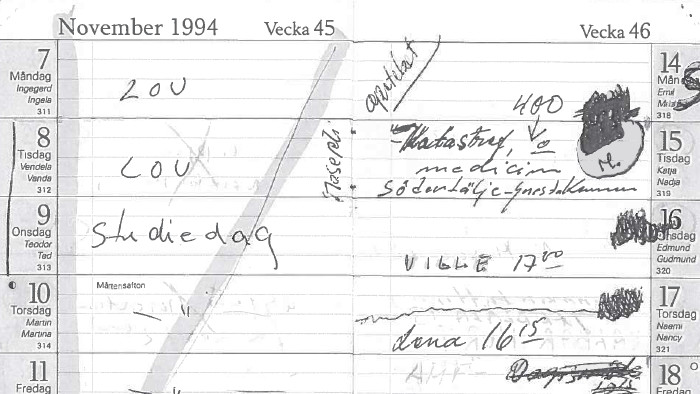 November 1994 Vecka 45
7
Måndag
Ingegerd
Ingela
311
LOV
8
Tisdag
Vendela
Vanda
312
LOV
9
Onsdag
Teodor
Tad
313
Studiedag
10
Torsdag
Martin
Martina
314
Mårtensafton
— " —
11
Fredag
— " —
Vecka 46
14
Mån
Emil
318
400
15
Tisdag
Katja
Nadja
319
Katastrof,
medicin
Södertälje
16
Onsdag
Edmund
Gudmund
320
VILLE 17 00
17
Torsdag
Naemi
Nancy
321
Lena 16 15
18
Fredag